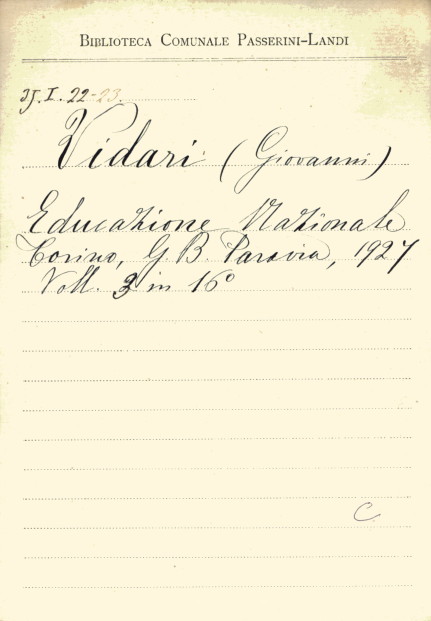 BIBLIOTECA COMUNALE PASSERINI-LANDI
I. 22-23.
Vidari (Giovanni)
Educazione Nazionale
Torino, G. B. Paravia, 1927
Voll. 3 in 16°
C